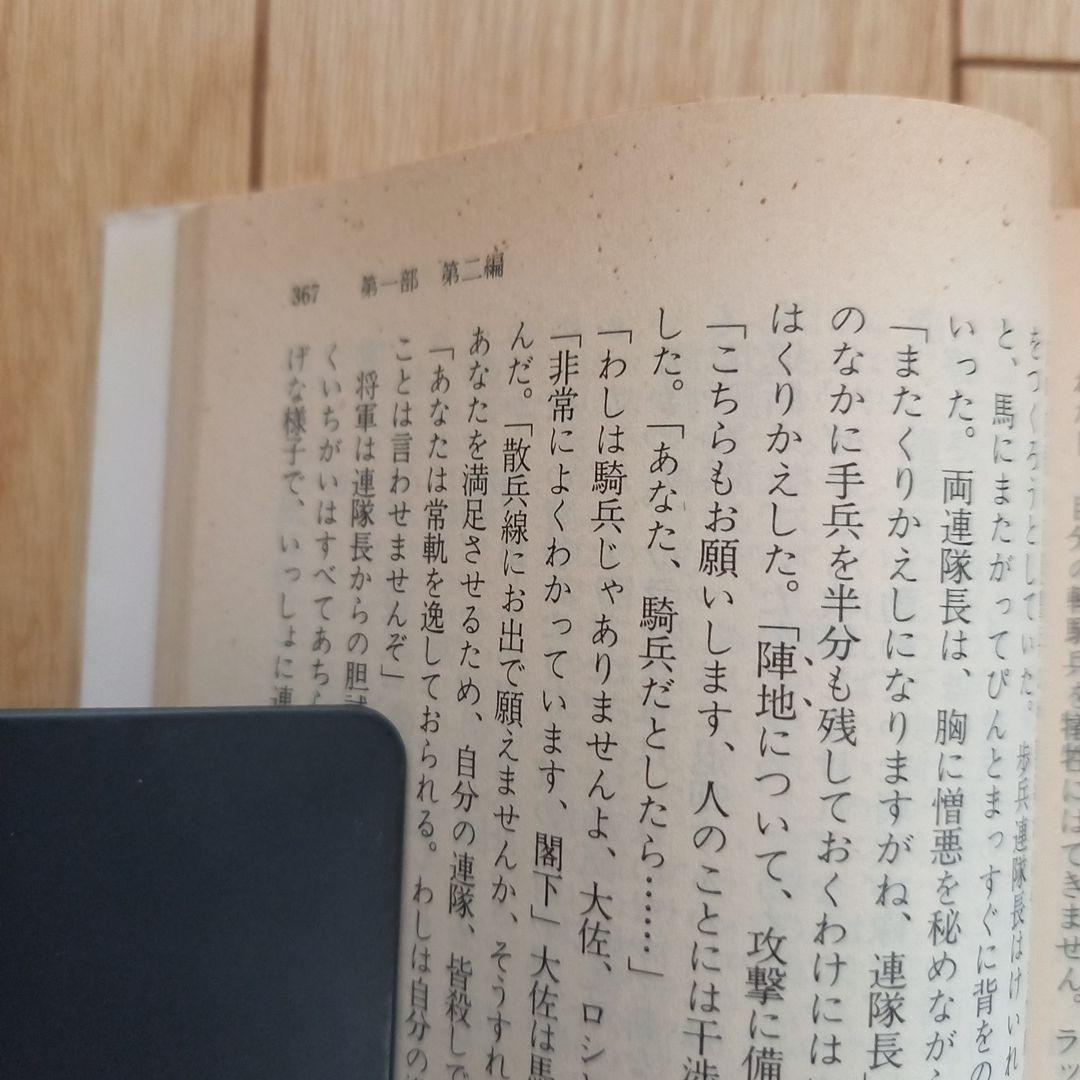 367 第一部 第二編
と、馬にまたがってぴんとまっすぐに背をの
いった。両連隊長は、胸に憎悪を秘めながら
「またくりかえしになりますがね、連隊長
のなかに手兵を半分も残しておくわけには
はくりかえした。「陣地について、攻撃に備
「こちらもお願いします、人のことには干渉
した。「あなた、騎兵だとしたら……」
「わしは騎兵じゃありませんよ、大佐、ロシ
「非常によくわかっています、閣下」大佐は馬
んだ。「散兵線にお出で願えませんか、そうすれ
あなたを満足させるため、自分の連隊、皆殺しで
「あなたは常軌を逸しておられる。わしは自分の
ことは言わせませんぞ」
将軍は連隊長からの胆試
くいちがいはすべてあちら
げな様子で、いっしょに連